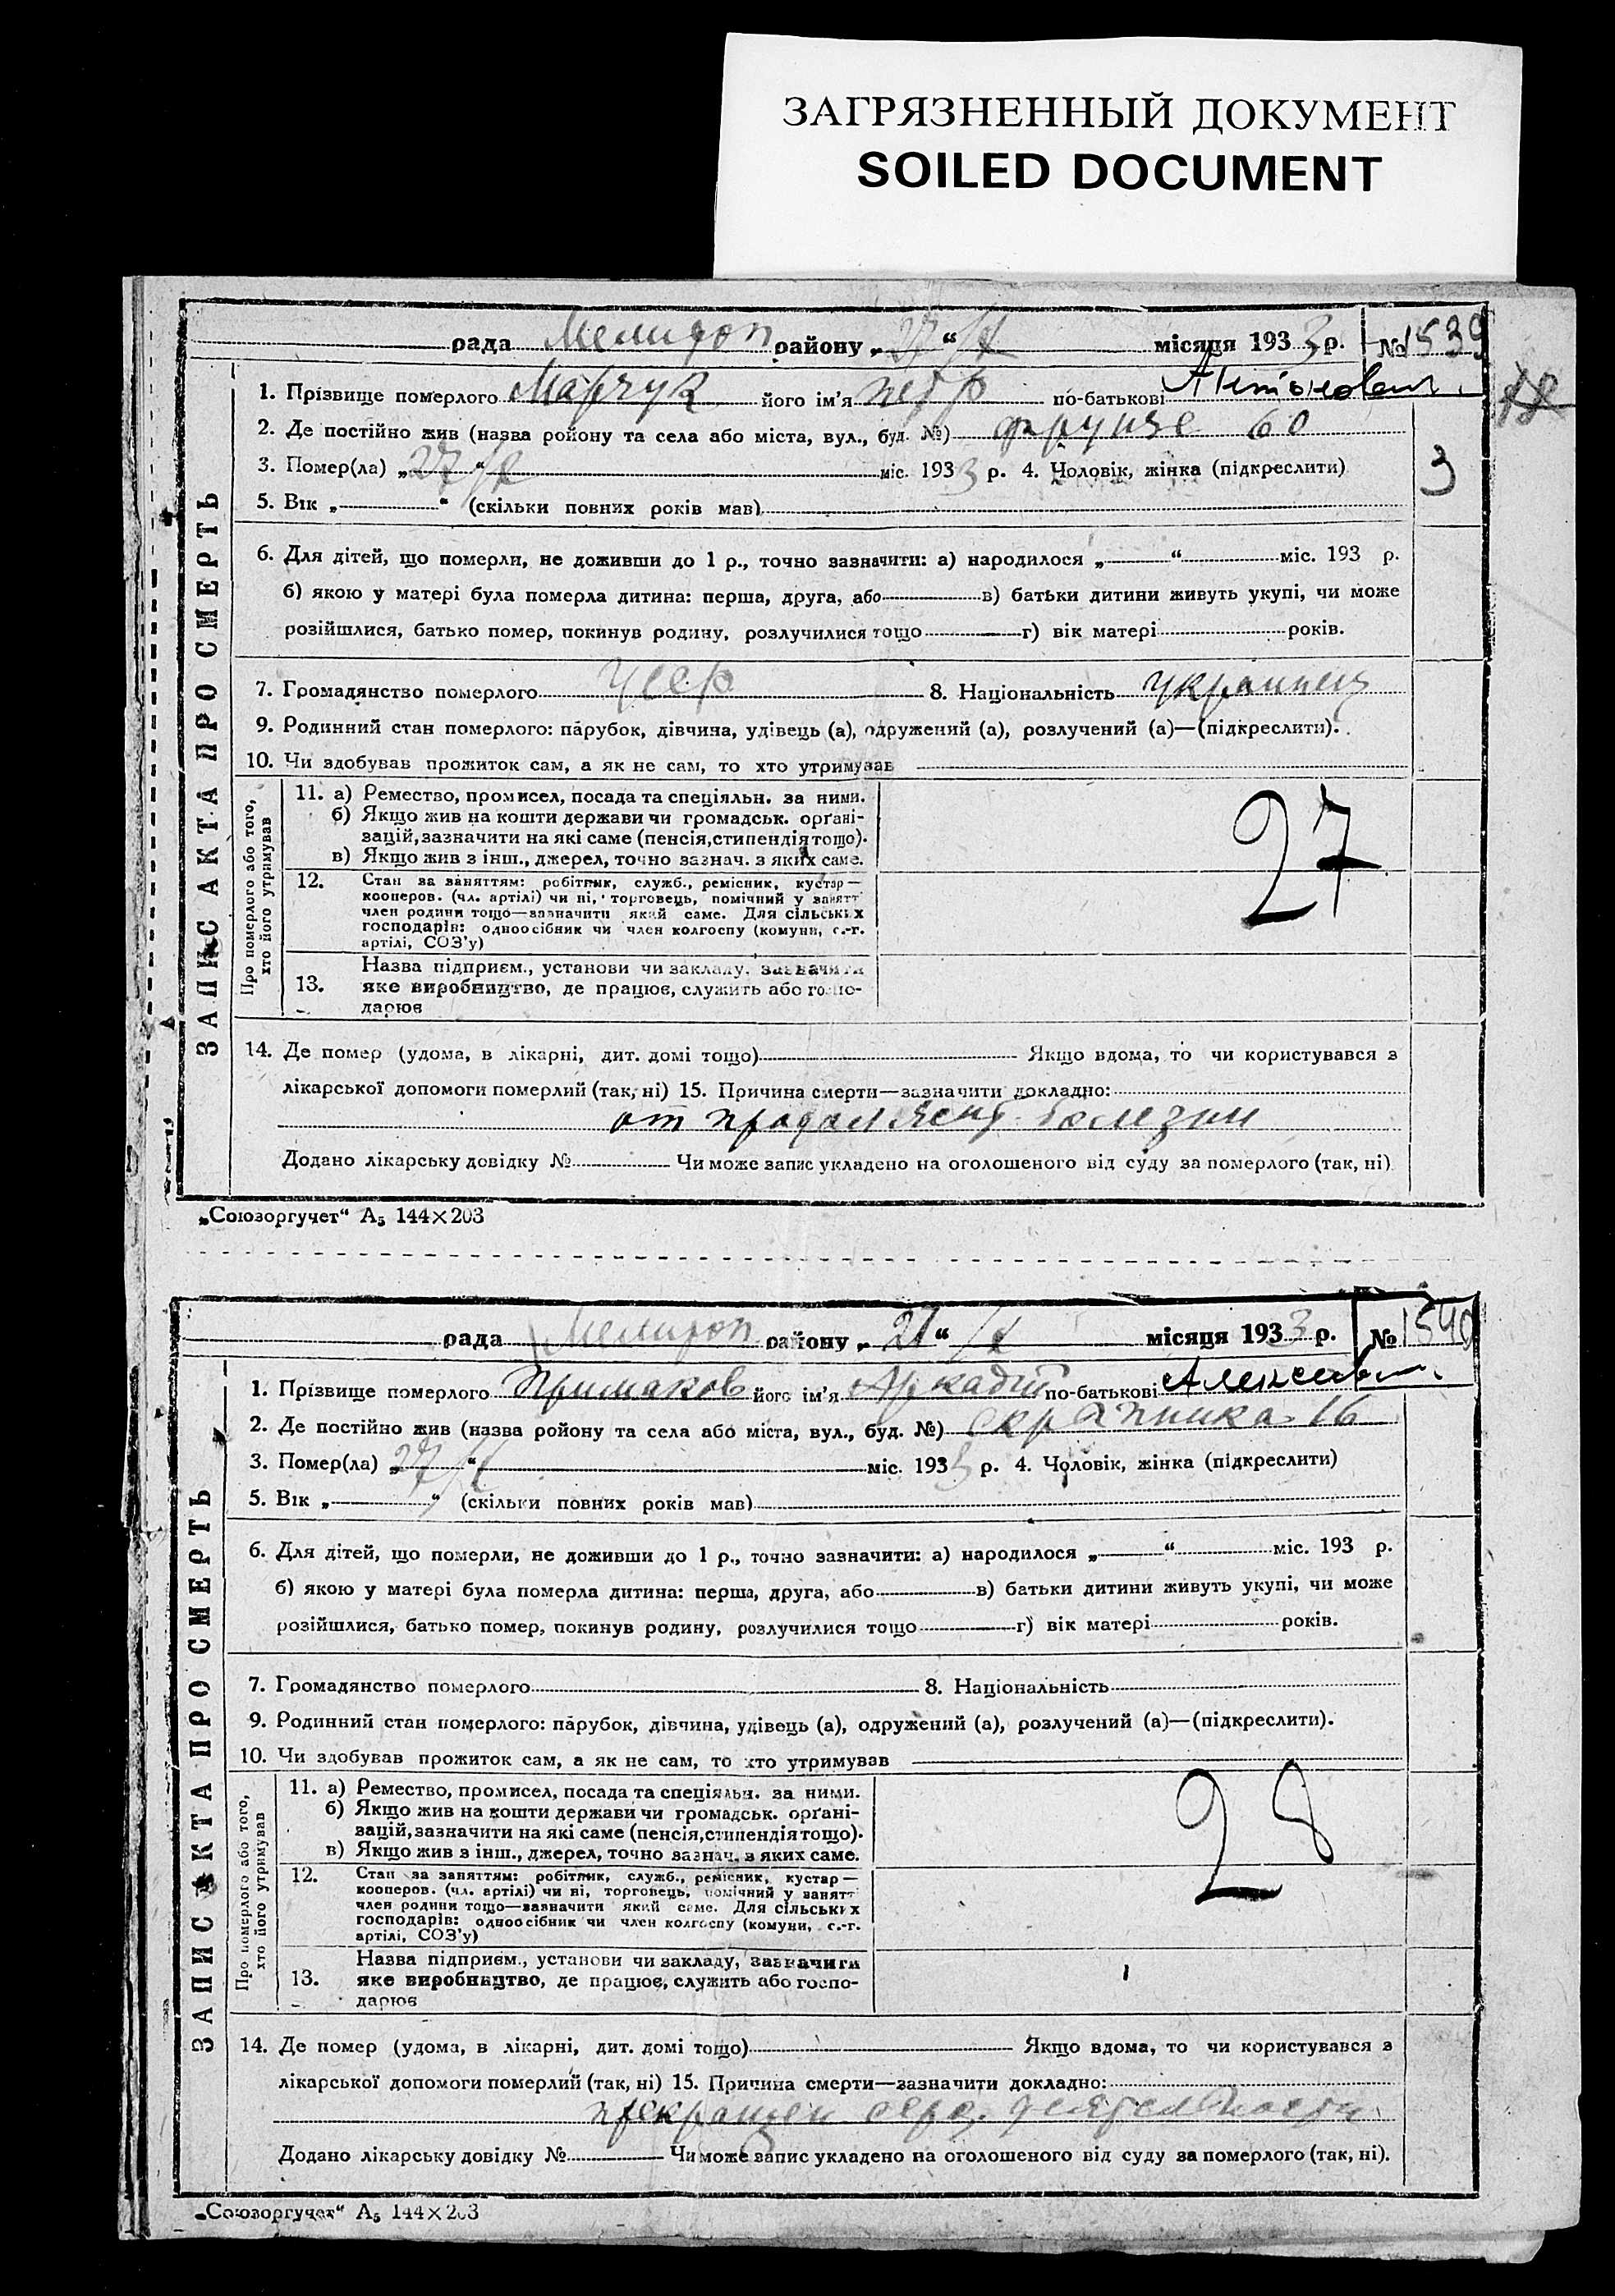 ЗАГРЯЗНЕННЫЙ ДОКУМЕНТ
SOILED DOCUMENT
рада Мелитоп району „27“ /X місяця 1933 р. № 1539
1. Прізвище померлого Марчук його ім'я петр по-батькові Антонович.
2. Де постійно жив (назва ройону та села або міста, вул., буд. №) фрунзе 60
3. Помер(ла) „27“ /X міс. 1933 р. 4. Чоловік, жінка (підкреслити)
3
5. Вік „ “ (скільки повних років мав)
6. Для дітей, що померли, не доживши до 1 р., точно зазначити: а) народилося „ “ міс. 193 р.
б) якою у матері була померла дитина: перша, друга, або в) батьки дитини живуть укупі, чи може
розійшлися, батько помер, покинув родину, розлучилися тощо г) вік матері років.
7. Громадянство померлого Усср 8. Національність украинец
9. Родинний стан померлого: парубок, дівчина, удівець (а), одружений (а), розлучений (а)—(підкреслити).
10. Чи здобував прожиток сам, а як не сам, то хто утримував
ЗАПИС АКТА ПРО СМЕРТЬ
Про померлого або того, хто його утримував
11. а) Ремество, промисел, посада та спеціяльн. за ними.
б) Якщо жив на кошти держави чи громадськ. орґані-
зацій, зазначити на які саме (пенсія, стипендія тощо).
в) Якщо жив з інш., джерел, точно зазнач. з яких саме.
27
12. Стан за заняттям: робітник, служб., ремісник, кустар—
кооперов. (чл. артілі) чи ні, торговець, помічний у занятт
член родини тощо—зазначити який саме. Для сільських
господарів: одноосібник чи член колгоспу (комуни, с.-г.
артілі, СОЗ'у)
13. Назва підприєм., установи чи закладу, зазначити
яке виробництво, де працює, служить або госпо-
дарює
14. Де помер (удома, в лікарні, дит. домі тощо) Якщо вдома, то чи користувався з
лікарської допомоги померлий (так, ні) 15. Причина смерти—зазначити докладно:
от болезни
Додано лікарську довідку № Чи може запис укладено на оголошеного від суду за померлого (так, ні)
„Союзоргучет“ А₅ 144×203
рада Мелитоп району „27“ /X місяця 1933 р. № 1540
1. Прізвище померлого Примаков його ім'я Аркадий по-батькові Алексеевич.
2. Де постійно жив (назва ройону та села або міста, вул., буд. №) скрыпника 16
3. Помер(ла) „27“ /X міс. 1933 р. 4. Чоловік, жінка (підкреслити)
5. Вік „ “ (скільки повних років мав)
6. Для дітей, що померли, не доживши до 1 р., точно зазначити: а) народилося „ “ міс. 193 р.
б) якою у матері була померла дитина: перша, друга, або в) батьки дитини живуть укупі, чи може
розійшлися, батько помер, покинув родину, розлучилися тощо г) вік матері років.
7. Громадянство померлого 8. Національність
9. Родинний стан померлого: парубок, дівчина, удівець (а), одружений (а), розлучений (а)—(підкреслити).
10. Чи здобував прожиток сам, а як не сам, то хто утримував
ЗАПИС АКТА ПРО СМЕРТЬ
Про померлого або того, хто його утримував
11. а) Ремество, промисел, посада та спеціяльн. за ними.
б) Якщо жив на кошти держави чи громадськ. орґані-
зацій, зазначити на які саме (пенсія, стипендія тощо).
в) Якщо жив з інш., джерел, точно зазнач. з яких саме.
28
12. Стан за заняттям: робітник, служб., ремісник, кустар—
кооперов. (чл. артілі) чи ні, торговець, помічний у занятт
член родини тощо—зазначити який саме. Для сільських
господарів: одноосібник чи член колгоспу (комуни, с.-г.
артілі, СОЗ'у)
13. Назва підприєм., установи чи закладу, зазначити
яке виробництво, де працює, служить або госпо-
дарює
14. Де помер (удома, в лікарні, дит. домі тощо) Якщо вдома, то чи користувався з
лікарської допомоги померлий (так, ні) 15. Причина смерти—зазначити докладно:
прекращен серд. деятельности
Додано лікарську довідку № Чи може запис укладено на оголошеного від суду за померлого (так, ні).
„Союзоргучет“ А₅ 144×203